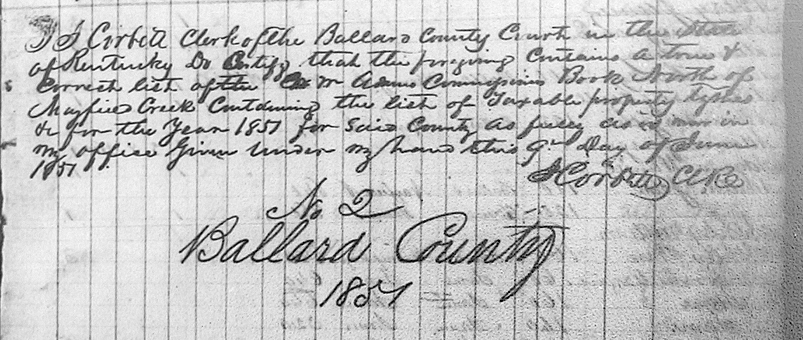 I J Corbett Clerk of the Ballard County Court in the State
of Kentucky Do Certify that the forgoing Contains a true &
Correct list of the Wm Adams Commissions Book North of
Mayfield Creek Containing the list of Taxable property tythes
& for the Year 1851 for Said County as fully as is now in
my office Given Under my hand this 9th Day of June
1851
J Corbett Clk
No 2
Ballard County
1851